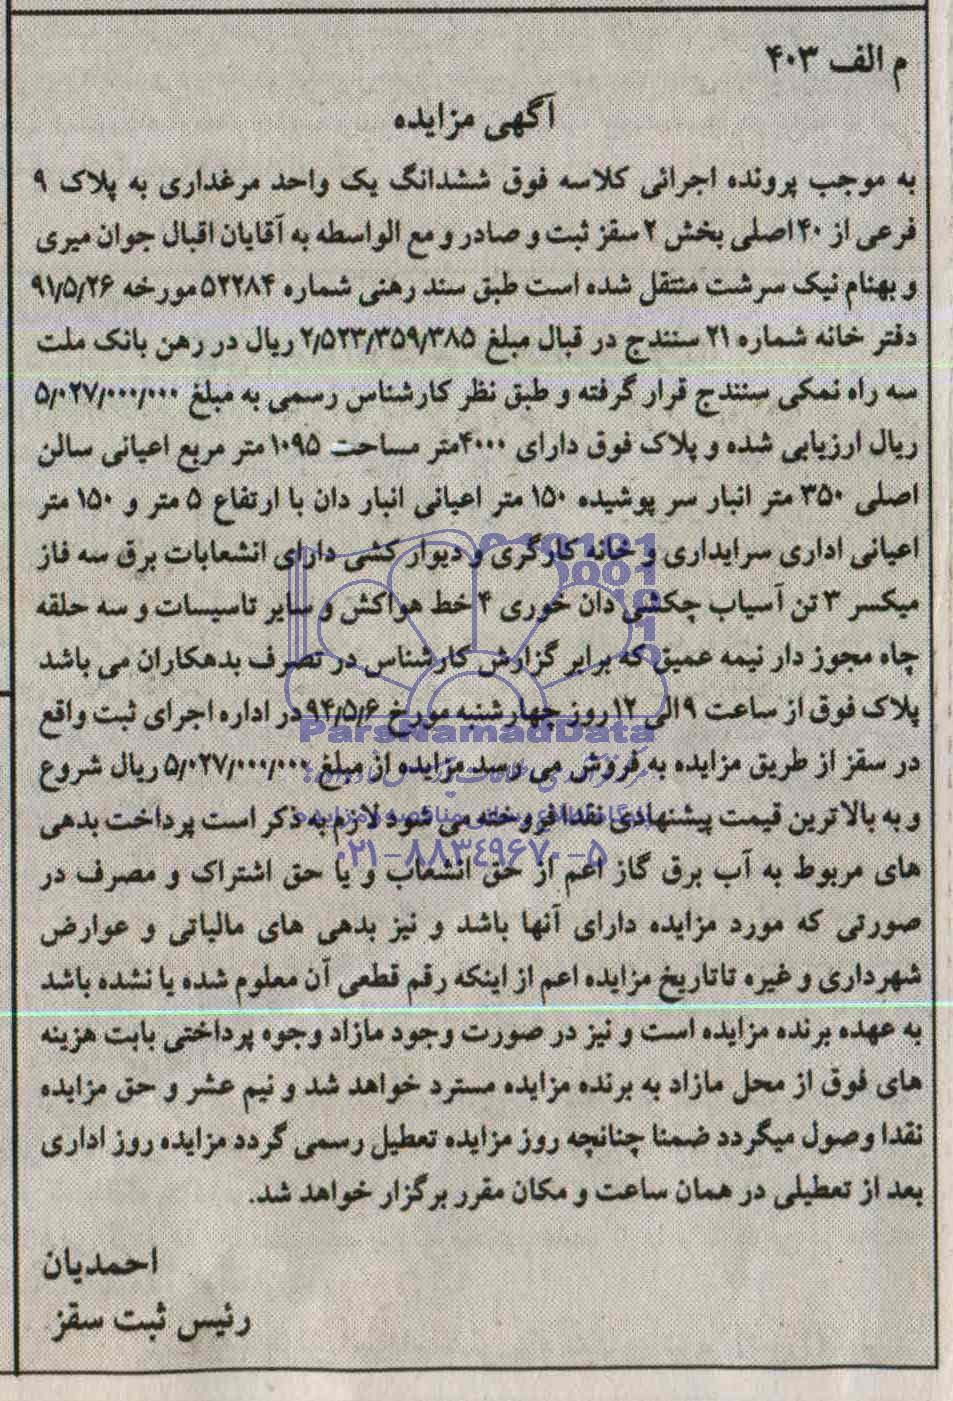 م الف ۴۰۳
آگهی مزایده
به موجب پرونده اجرائی کلاسه فوق ششدانگ یک واحد مرغداری به پلاک ۹
فرعی از ۴۰ اصلی بخش ۲ سقز ثبت و صادر و مع الواسطه به آقایان اقبال جوان میری
و بهنام نیک سرشت منتقل شده است طبق سند رهنی شماره ۵۲۲۸۴ مورخه ۹۱/۵/۲۶
دفتر خانه شماره ۲۱ سنندج در قبال مبلغ ۲/۵۲۳/۳۵۹/۳۸۵ ریال در رهن بانک ملت
سه راه نمکی سنندج قرار گرفته و طبق نظر کارشناس رسمی به مبلغ ۵/۰۲۷/۰۰۰/۰۰۰
ریال ارزیابی شده و پلاک فوق دارای ۴۰۰۰متر مساحت ۱۰۹۵ متر مربع اعیانی سالن
اصلی ۳۵۰ متر انبار سر پوشیده ۱۵۰ متر اعیانی انبار دان با ارتفاع ۵ متر و ۱۵۰ متر
اعیانی اداری سرایداری و خانه کارگری و دیوار کشی دارای انشعابات برق سه فاز
میکسر ۳ تن آسیاب چکشی دان خوری ۴ خط هواکش و سایر تاسیسات و سه حلقه
چاه مجوز دار نیمه عمیق که برابر گزارش کارشناس در تصرف بدهکاران می باشد
پلاک فوق از ساعت ۹ الی ۱۲ روز چهارشنبه مورخ ۹۴/۵/۶ در اداره اجرای ثبت واقع
ParsNamadData
در سقز از طریق مزایده به فروش می رسد مزایده از مبلغ ۵/۰۲۷/۰۰۰/۰۰۰ ریال شروع
و به بالاترین قیمت پیشنهادی نقدا فروخته می شود لازم به ذکر است پرداخت بدهی
۰۲۱-۸۸۳۴۹۶۷۰-۵
های مربوط به آب برق گاز اعم از حق انشعاب و یا حق اشتراک و مصرف در
صورتی که مورد مزایده دارای آنها باشد و نیز بدهی های مالیاتی و عوارض
شهرداری و غیره تا تاریخ مزایده اعم از اینکه رقم قطعی آن معلوم شده یا نشده باشد
به عهده برنده مزایده است و نیز در صورت وجود مازاد وجوه پرداختی بابت هزینه
های فوق از محل مازاد به برنده مزایده مسترد خواهد شد و نیم عشر و حق مزایده
نقدا وصول میگردد ضمنا چنانچه روز مزایده تعطیل رسمی گردد مزایده روز اداری
بعد از تعطیلی در همان ساعت و مکان مقرر برگزار خواهد شد.
احمدیان
رئیس ثبت سقز